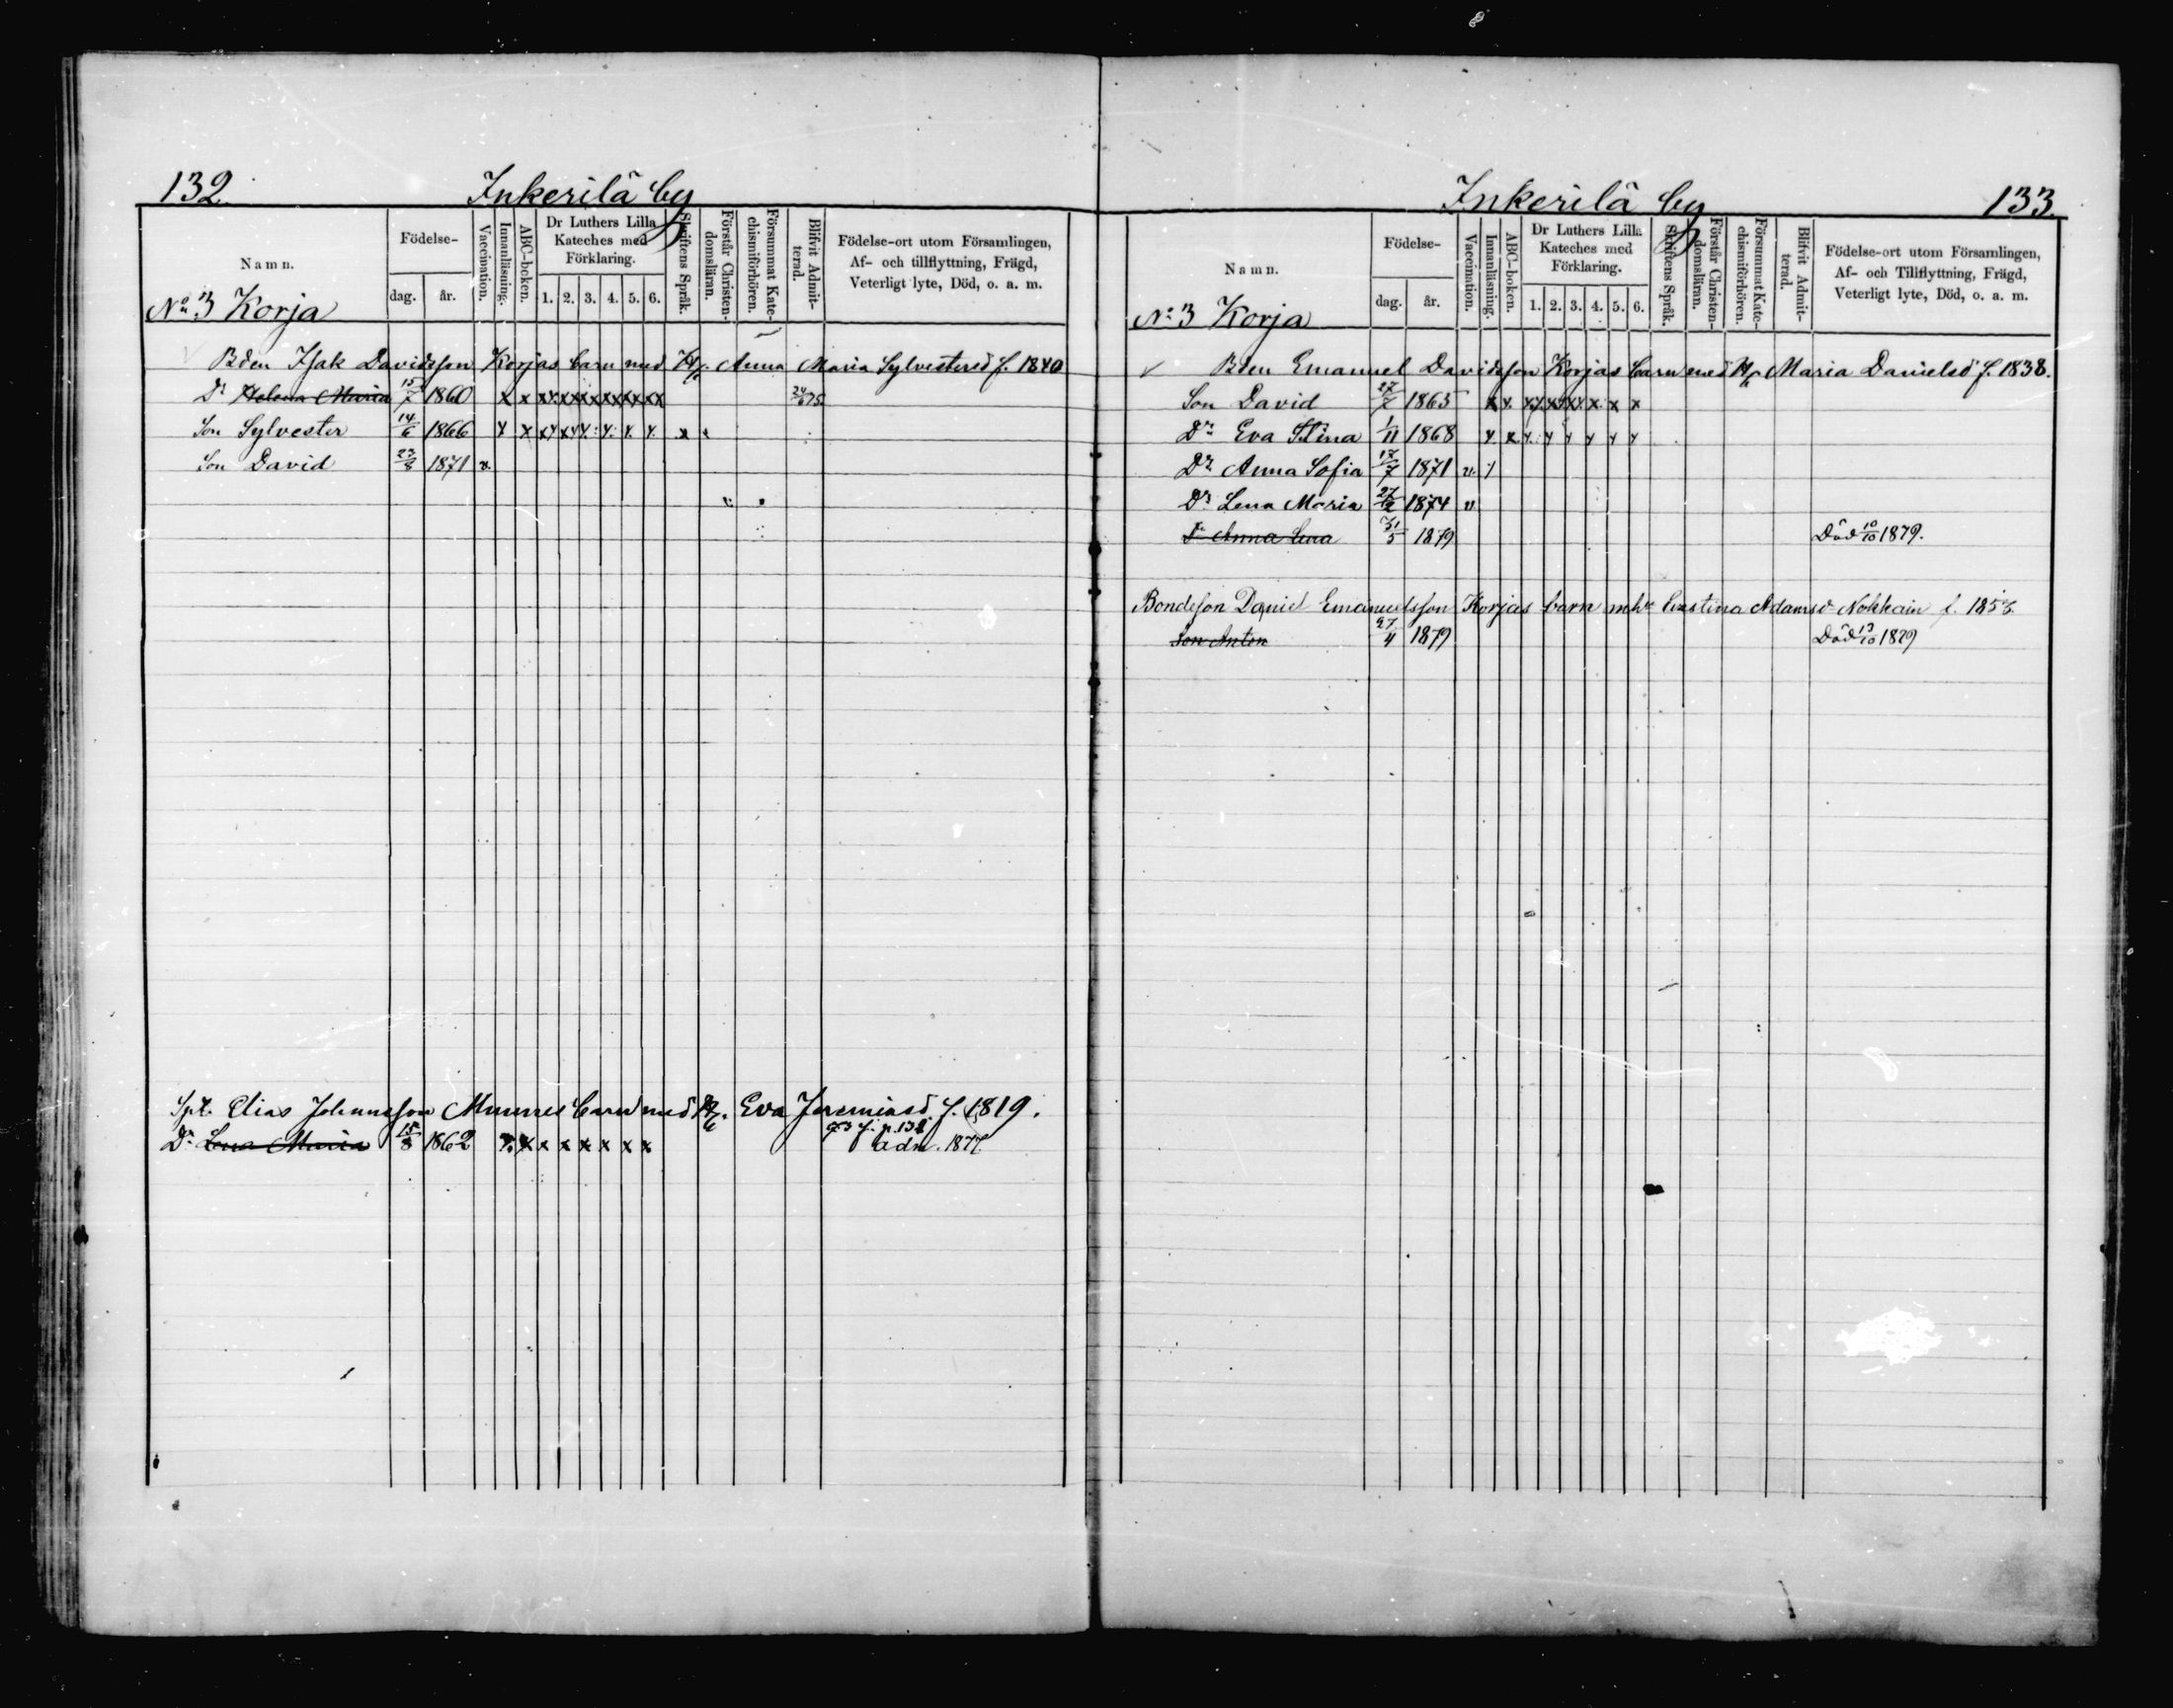 132. Inkerilä by
Namn. Födelse- dag. år. Vaccination. Innanläsning. ABC-boken. Dr Luthers Lilla Kateches med Förklaring. 1. 2. 3. 4. 5. 6. Skriftens Språk. Förstår Christendomsläran. Försummat Katechismiförhören. Blifvit Admitterad. Födelse-ort utom Församlingen, Af- och tillflyttning, Frägd, Veterligt lyte, Död, o. a. m.
No 3 Korja
Bden Isak Davidsson Korjas barn med H. Anna Maria Sylvestersd f. 1840
Dr Helena Maria 15/7 1860 x x x x x x x x x x x x 24/6 75.
Son Sylvester 14/6 1866 x x x x x x x x x x x
Son David 23/8 1871 v.
Spt. Elias Johansson Munnes barn med H. Eva Jeremiasd. f. 1819.
Dr Lena Maria 15/8 1862 x x x x x x x x Adm. 1877.
Inkerilä by 133.
Namn. Födelse- dag. år. Vaccination. Innanläsning. ABC-boken. Dr Luthers Lilla Kateches med Förklaring. 1. 2. 3. 4. 5. 6. Skriftens Språk. Förstår Christendomsläran. Försummat Katechismiförhören. Blifvit Admitterad. Födelse-ort utom Församlingen, Af- och Tillflyttning, Frägd, Veterligt lyte, Död, o. a. m.
No 3 Korja
Bden Emanuel Davidsson Korjas barn med H. Maria Danielsd f. 1838.
Son David 27/7 1865 x x x x x x x x x x x
Dr Eva Stina 1/11 1868 x x x x x x x x
Dr Anna Sofia 17/7 1871 v. /
Dr Lena Maria 27/12 1874 v
Dr Anna Lena 31/5 1879 Död 10/10 1879.
Bondeson Daniel Emanuelsson Korjas barn m h. Cristina Adamsd Nokkain f. 1858.
Son Anton 27/4 1879 Död 13/10 1879